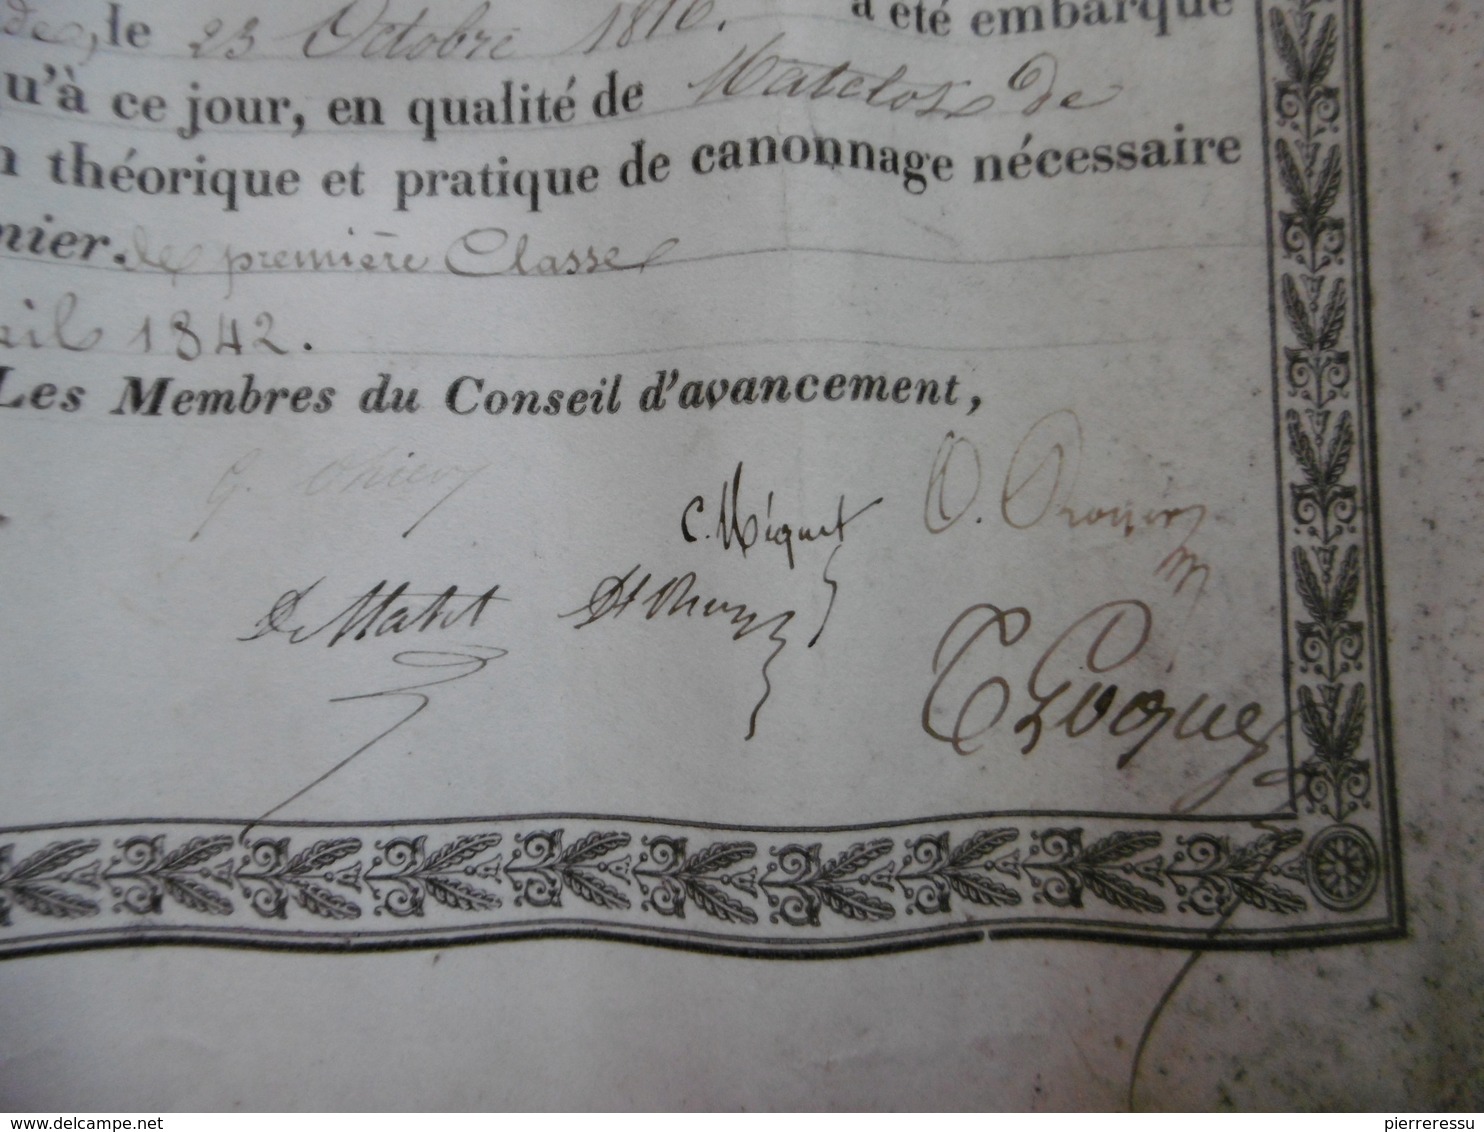 de, le 23 Octobre 1816. a été embarqué
u'à ce jour, en qualité de Matelot de
n théorique et pratique de canonnage nécessaire
nier. de première Classe
ril 1842.
Les Membres du Conseil d'avancement,
C. Méquet
delcampe.net
pierreressu